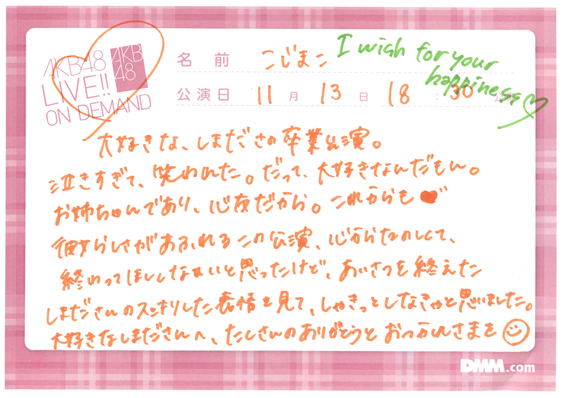 AKB48
LIVE!!
ON DEMAND
AKB
48
名前 こじまこ
I wish for your
happiness♡
公演日 11月 13日 18:30
大好きな、しまださんの卒業公演。
泣きすぎて、笑われた。だって、大好きなんだもん。
お姉ちゃんであり、心友だから。これからも♥
彼女らしさがあふれるこの公演、心からたのしくて、
終わってほしくないと思ったけど、あいさつを終えた
しまださんのスッキリした表情を見て、しゃきっとしなきゃと思いました。
大好きなしまださんへ、たくさんのありがとうとおつかれさまを☺
DMM.com